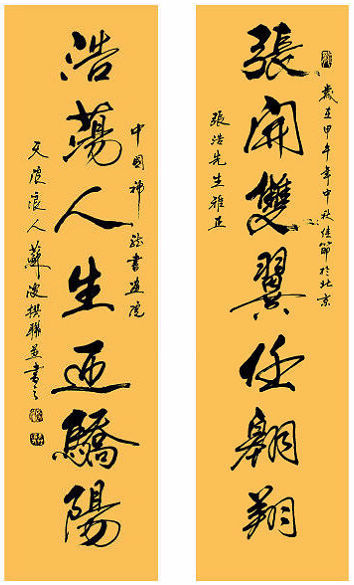 歲在甲午年中秋佳節於北京
張開雙翼任翱翔
張浩先生雅正
中國神書畫院
浩蕩人生迎驕陽
浪人蘇撰聯並書之